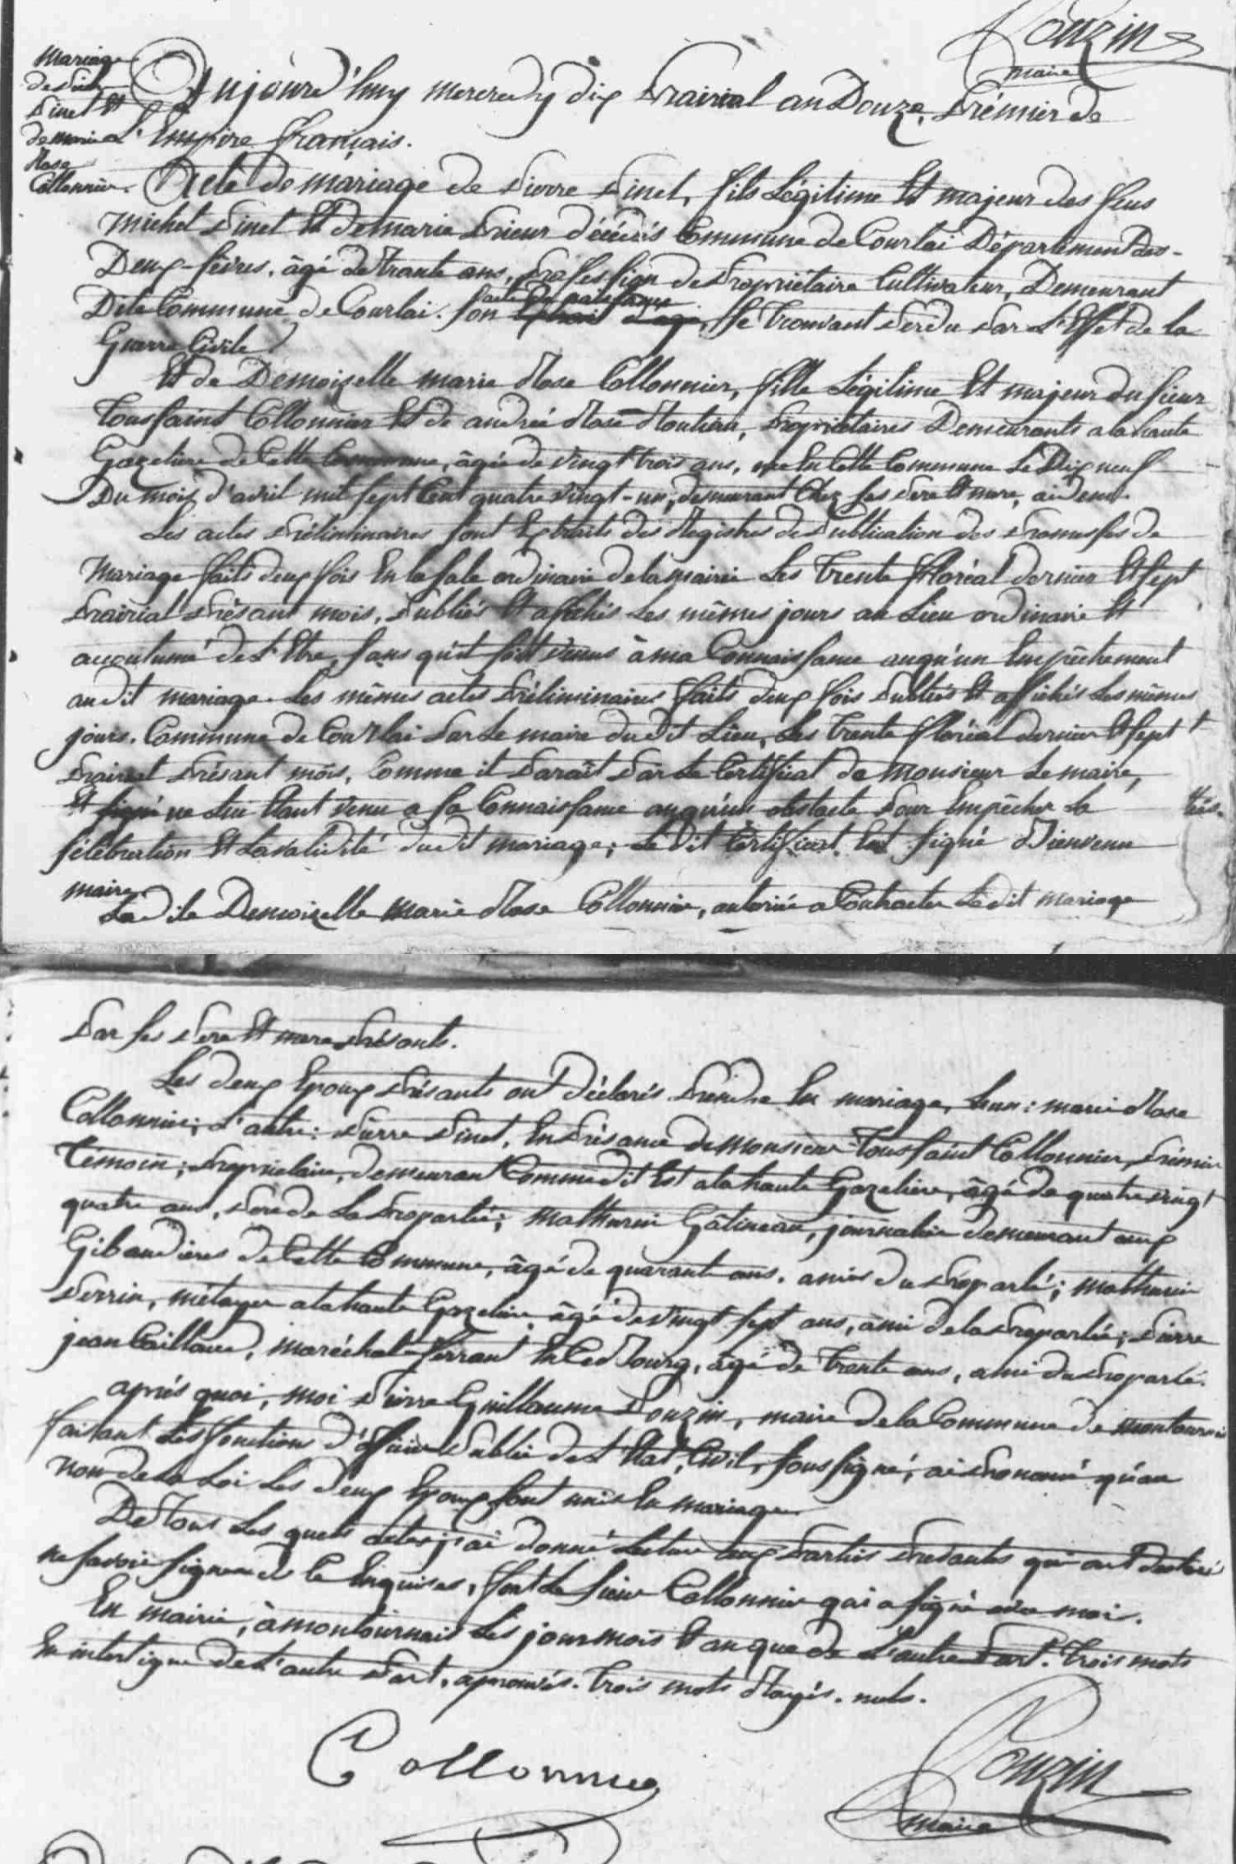 Pouzin
maire
Mariage
de Pierre
Pinet Et
de marie
Rose
Collonnier.
Aujourd'huy mercredy dix Prairial an Douze, Prémier de
L'Empire français.
Acte de mariage de Pierre Pinet, fils Légitime Et majeur des feus
Michel Pinet Et de marie Prieur décédés Commune de Courlai Département des-
Deux-sèvres, âgé de trante ans, Profession de Propriétaire Cultivateur, Demeurant
Dite Commune de Courlai. son acte de naissance, se trouvant Perdu Par L'Effet de la
Guerre Civile.
Et de Demoiselle marie Rose Collonnier, fille Légitime Et majeur du sieur
Toussaint Collonnier Et de andrée Rose Routiau, Propriétaires Demeurants a la haute
Gazeliere de Cette Commune, âgée de vingt trois ans, née En Cette Commune Le Dix neuf
Du mois d'avril mil sept Cent quatre vingt-un, demeurant Chez ses Pere Et mere, aidend.
Les actes Préliminaires sont Extraits des Registres de Publication des Promesses de
Mariage faits deux fois En la sale ordinaire de la mairie Les Trente floréal dernier Et sept
Prairial Présant mois, Publiés Et affichés Les mêmes jours au Lieu ordinaire Et
accoutumé de L'Etre, sans qu'il soit venus à ma Connaissance auqu'un Empêchement
au dit mariage. Les mêmes actes Préliminaires faits deux fois Publiés Et affichés Les mêmes
jours. Commune de Courlai Par Le maire du dit Lieu, Les Trente floréal dernier Et sept
Prairial Présant mois, Comme il Parait Par Le Certificat de Monsieur Le maire,
Et signé ne Lui Etant venu a sa Connaissance auqu'un obstacle Pour Empêcher La
sélébration Et La validité du dit mariage; Le dit Certificat Est signé Bienvenu
maire.
La dite Demoiselle Marie Rose Collonnier, autorisée a Contracter Le dit mariage
Par ses Pere Et mere Présants.
Les deux Epoux Présants ont Déclarés Prendre En mariage, L'un: marie Rose
Collonnier; L'autre: Pierre Pinet, En Présance de Monsieur Toussaint Collonnier, Prémier
Témoin; Propriétaire, demeurant Comme dit Est a la haute Gazeliere, âgé de quatre vingt
quatre ans, Pere de La Proparlée; Mathurin Gâtineau, journalier demeurant aux
Gibaudières de Cette Commune, âgé de quarante ans, amis du Proparlé; Mathurin
Perrin, métayer a la haute Gazeliere, âgé de vingt sept ans, ami de la Proparlée; Pierre
jean Caillaud, maréchal ferrant En Ce Bourg, âgé de Trente ans, ami du Proparlé.
après quoi, moi Pierre Guillaume Pouzin, maire de la Commune de montournais
faisant Les fonctions d'officier Public de L'Etat Civil, soussigné, ai Prononcé qu'au
nom de La Loi Les deux Epoux sont unis En mariage.
De Tous Les quels actes j'ai donné Lecture aux Parties Présantes qui ont déclaré
ne savoir signer de Ce Enquises, fort Le sieur Collonnier qui a signé avec moi.
En mairie, à montournais Les jour mois Et an que de L'autre Part. Trois mots
En interligne de L'autre Part, aprouvés. Trois mots Rayés. nuls.
Collonnier
Pouzin
maire